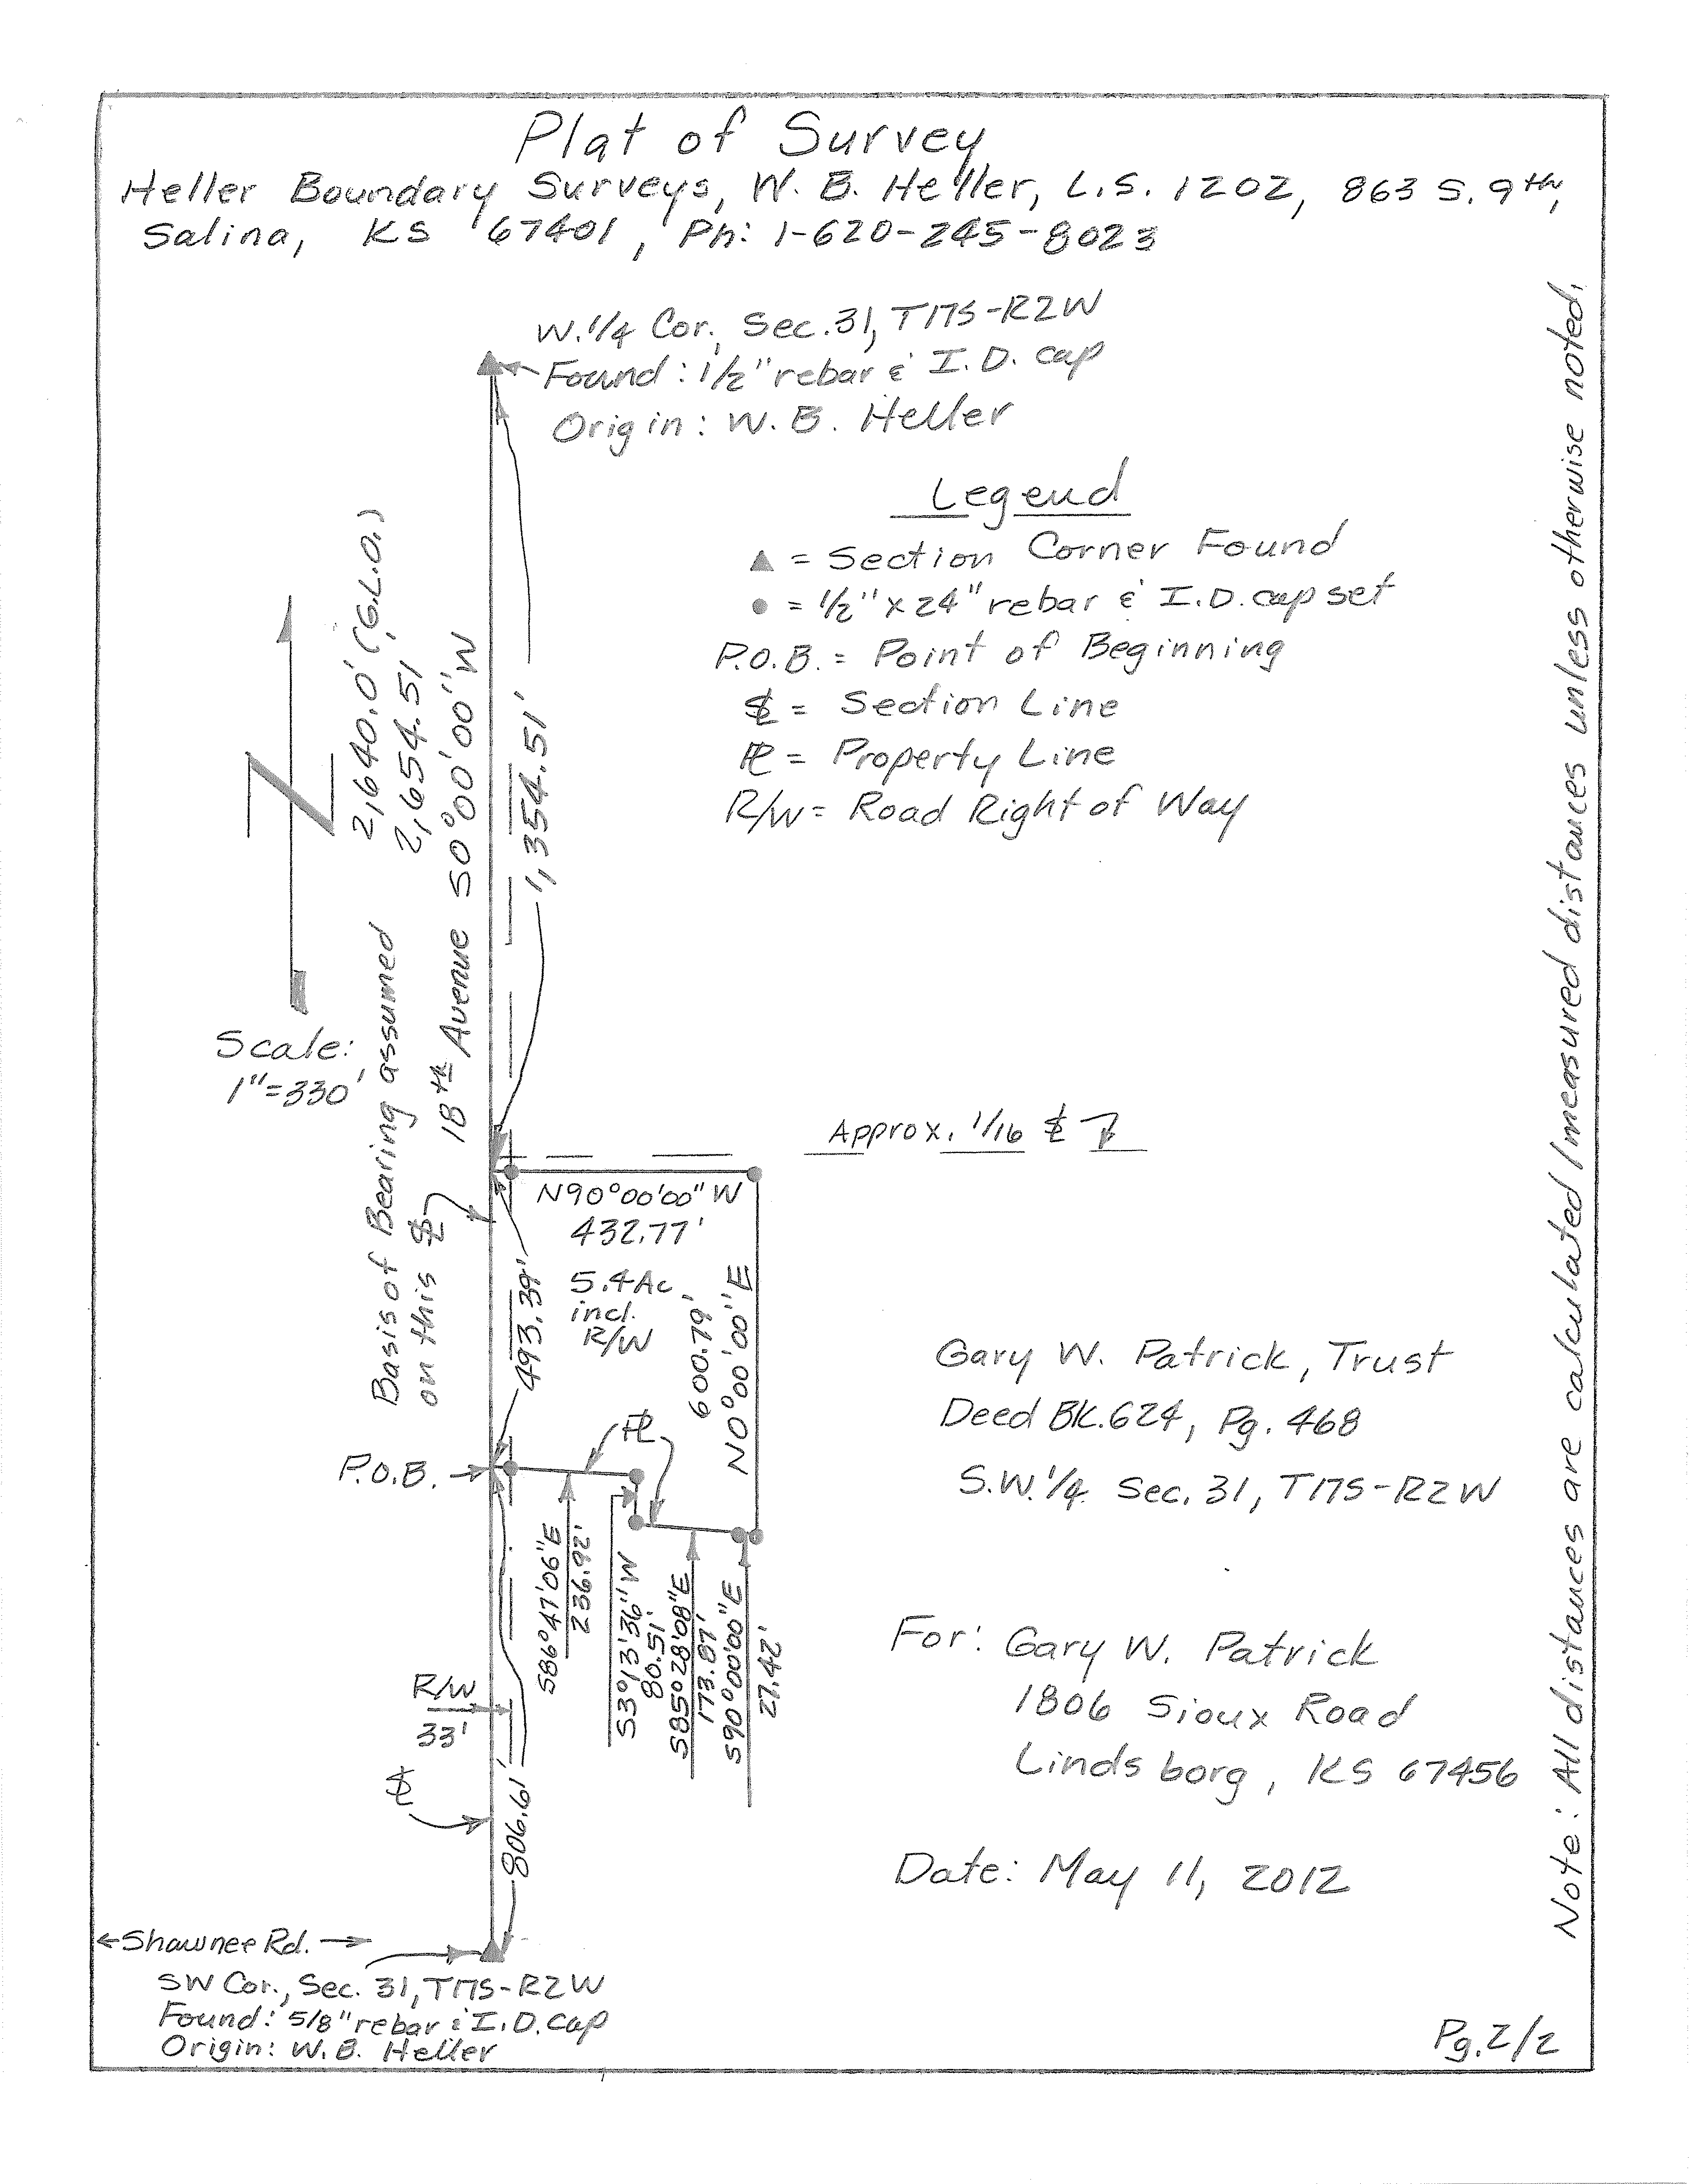 Plat of Survey
Heller Boundary Surveys, W. B. Heller, L.S. 1202, 863 S. 9th,
Salina, KS 67401, Ph: 1-620-245-8023
W. 1/4 Cor., Sec. 31, T17S-R2W
Found: 1/2" rebar & I.D. cap
Origin: W. B. Heller
Legend
▲ = Section Corner Found
● = 1/2" x 24" rebar & I.D. cap set
P.O.B. = Point of Beginning
SL = Section Line
PL = Property Line
R/W = Road Right of Way
2,640.0' (G.L.O.)
2,654.51'
18th Avenue S0°00'00"W
1,354.51'
Scale:
1"=330'
Basis of Bearing assumed
on this SL
Approx. 1/16 SL
N90°00'00"W
432.77'
5.4 Ac
incl.
R/W
493.39'
600.79'
N0°00'00"E
PL
P.O.B.
S86°47'06"E
236.92'
S3°13'36"W
80.51'
S85°28'08"E
173.87'
S90°00'00"E
27.42'
Gary W. Patrick, Trust
Deed BK. 624, Pg. 468
S.W. 1/4 Sec. 31, T17S-R2W
For: Gary W. Patrick
1806 Sioux Road
Lindsborg, KS 67456
R/W
33'
SL
806.61'
Date: May 11, 2012
Shawnee Rd.
SW Cor., Sec. 31, T17S-R2W
Found: 5/8" rebar & I.D. Cap
Origin: W. B. Heller
Pg. 2/2
Note: All distances are calculated/measured distances unless otherwise noted.